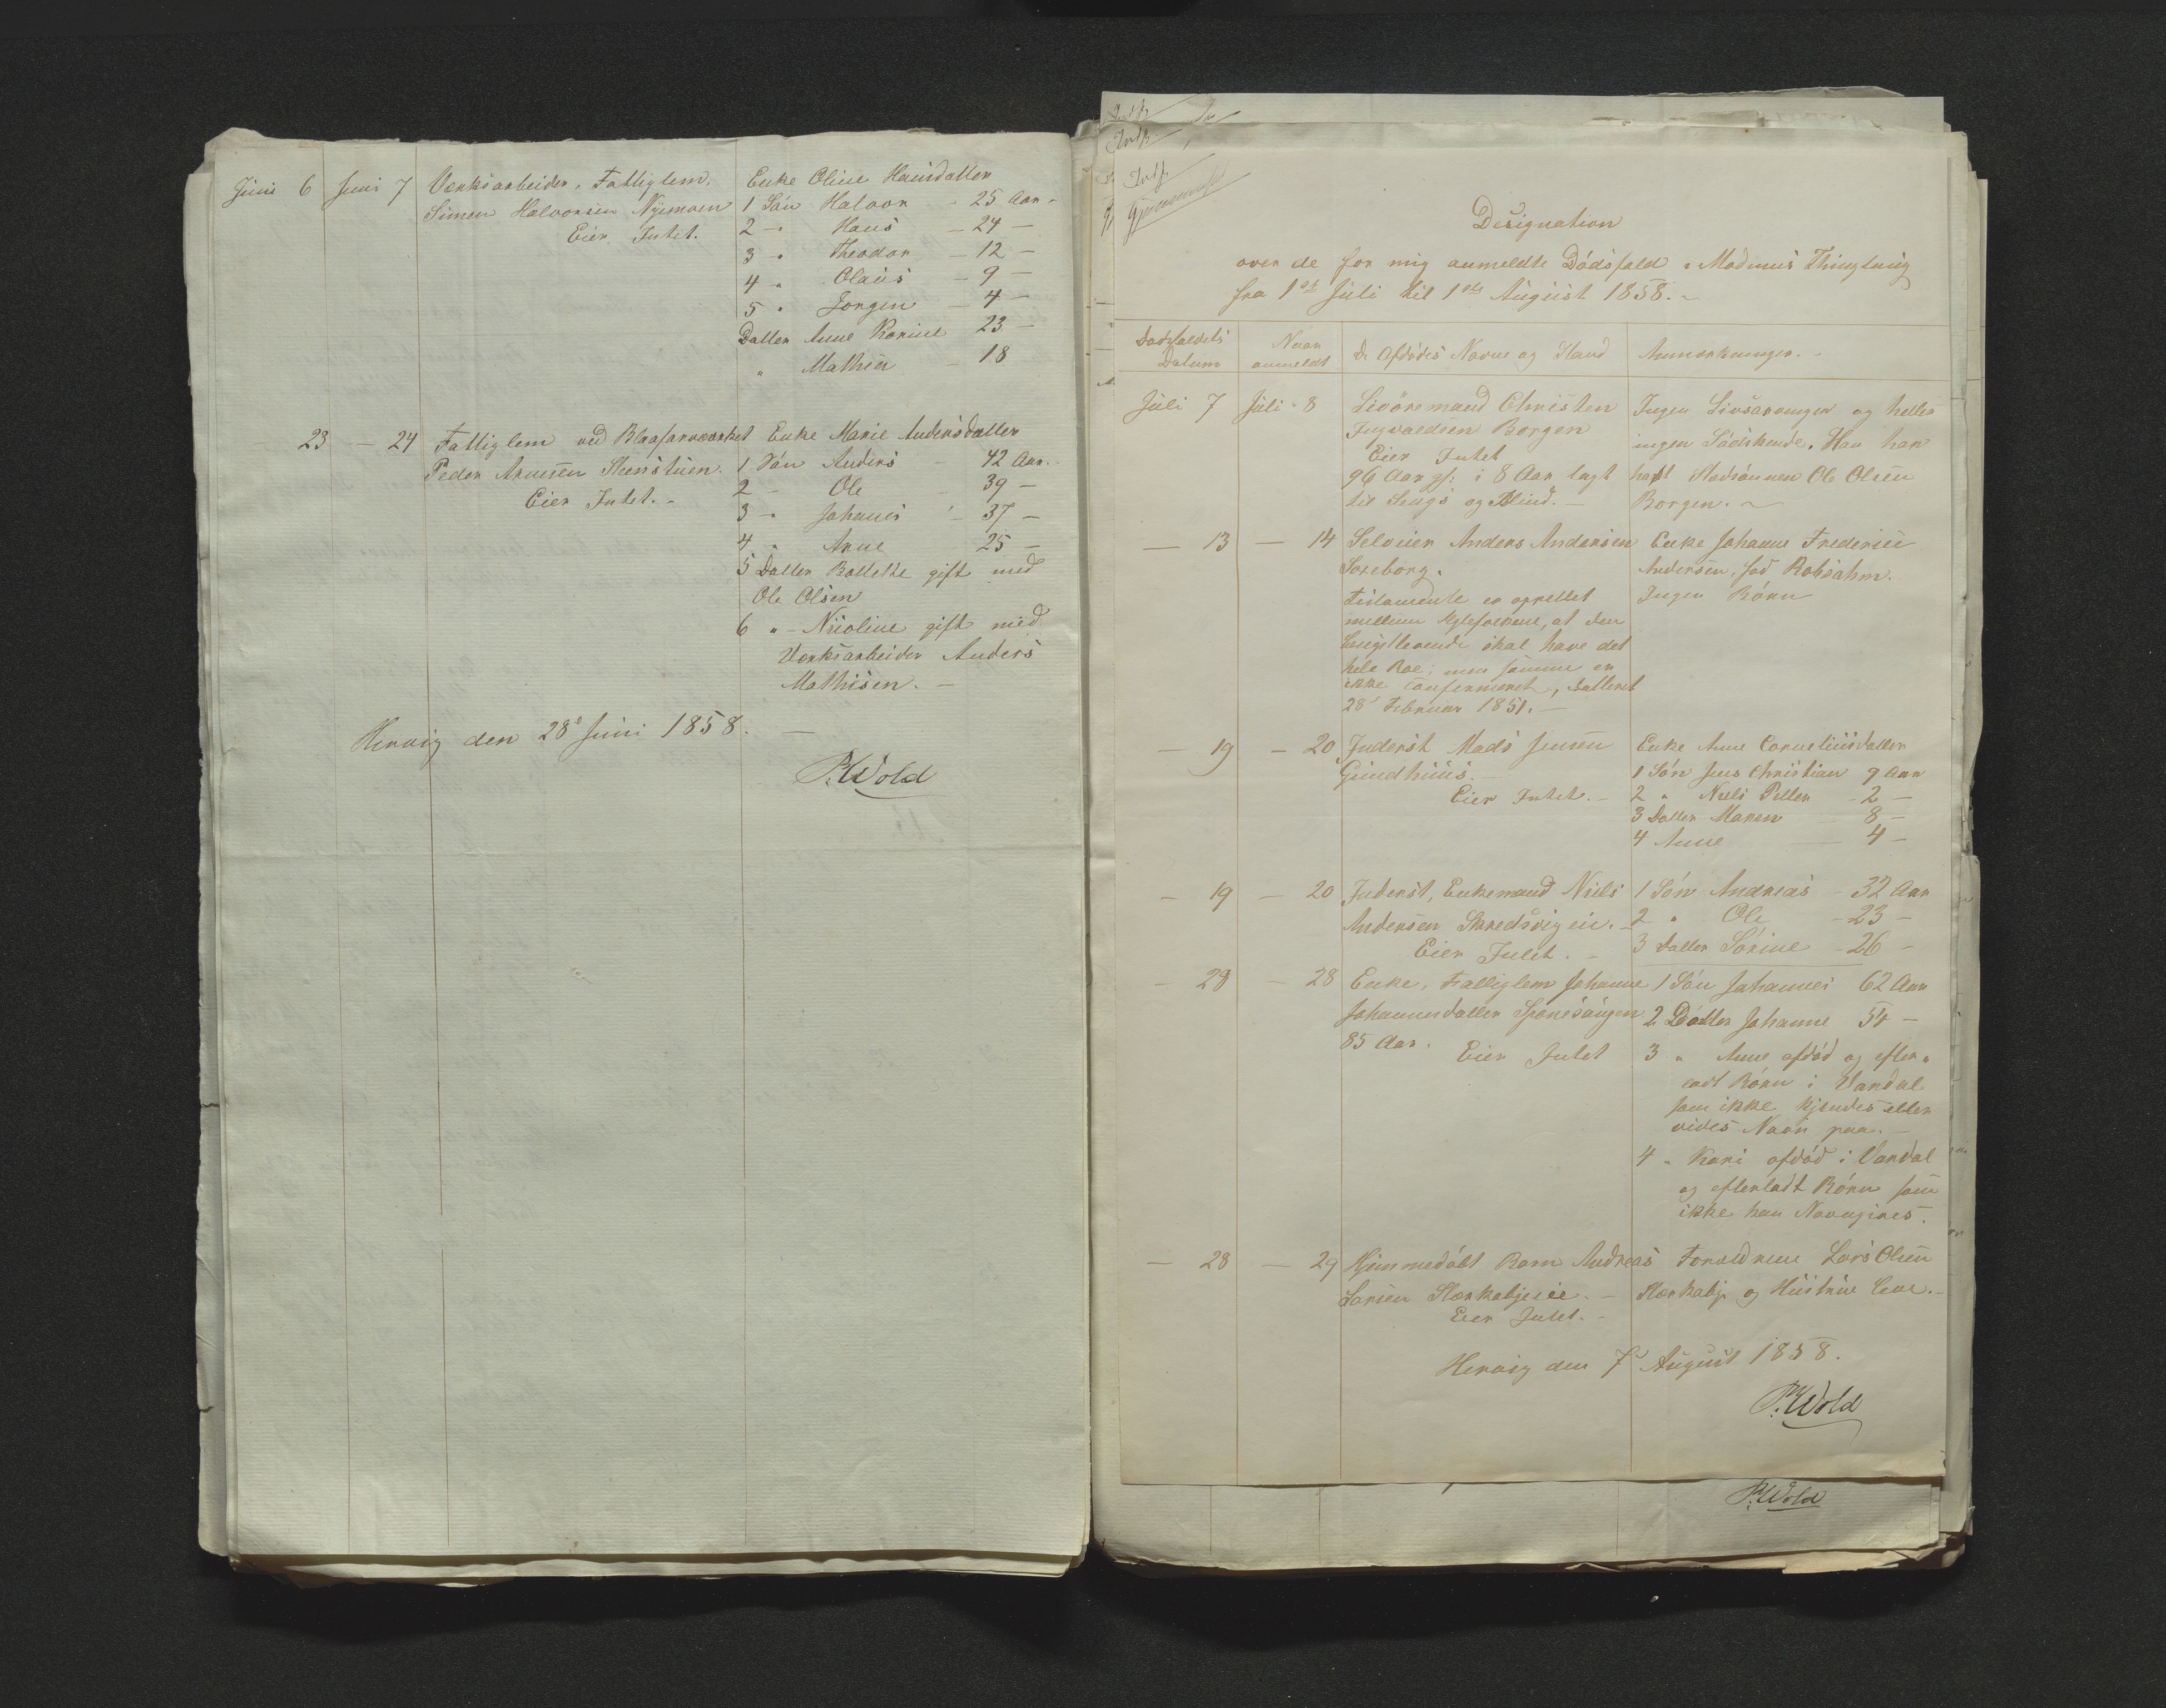 Juni 6 Juni 7 Værksarbeider, Fattiglem, Enke Oline Hansdatter
Simen Halvorsen Nyemoen 1 Sön Halvor - 25 Aar -
Eier Intet. 2 - " Hans - 24 -
3 " Theodor - 12 -
4 " Olaus - 9 -
5 " Jorgen - 4 -
Datter Anne Karine 23 -
" Mathea - 18
23 - 24 Fattiglem ved Blaafarveværket Enke Marie Andersdatter
Peder Arnesen Steenstuen. 1 Sön Anders - 42 Aar.
Eier Intet. - 2 - Ole - 39 -
3 - Johanes - 37 -
4 " Arne 25 -
5 Datter Bollette gift med
Ole Olsen
6 " - Nicoline gift med
Værksarbeider Anders
Mathisen. -
Hervig den 28d Juni 1858. -
P. Wold
Indf.
Indf.
Indf.
Designation
over de for mig anmeldte Dödsfald i Modums Thinglaug
fra 1st Juli til 1ste August 1858. -
Dödsfaldets
Datum
Naar
anmeldt
De Afdödes Navne og Stand
Anmærkninger. -
Juli 7 Juli 8 Livöremand Christen Ingen Livsarvinger og heller
Ingvaldsen Borgen ingen Södskende. Han har
Eier Intet
96 Aar gl: i 8 Aar lagt havt Stedsönnen Ole Olsen
til Sengs og Blind. - Borgen. -
- 13 - 14 Selveier Anders Andersen Enke Johanne Frederike
Soreborg. Andersen,föd Robsahm.
Testamente er oprettet Ingen Börn
mellem Ægtefolkene, at den
længstlevende skal have det
hele Boe; men samme er
ikke confirmeret, datteret
28d Februar 1851. -
- 19 - 20 Inderst Mads Jensen Enke Anne Corneliusdatter
Gundhuus. - 1 Sön Jens Christian 9 Aar
Eier Intet. - 2 " Niels Petter - 2 -
3 Datter Maren - 8 -
4 Anne - 4 -
- 19 - 20 Inderst, Enkemand Niels 1 Sön Andreas - 32 Aar
Andersen Skredsvigeie. - 2 " Ole - 23 -
Eier Intet. - 3 Datter Sörine - 26 -
- 28 Enke, Fattiglem Johanne 1 Sön Johannes 62 Aar
Johannesdatter Sponesängen 2 Datter Johanne 54 -
85 Aar. Eier Intet 3 " Anne afdöd og efter-
ladt Börn i Vardal
som ikke kjendes eller
vides Navn paa. -
4 " Kari afdöd i Vardal
og efterladt Börn som
ikke kan Navngives.
- 28 - 29 Hjemmedöbt Barn Andreas Forældrene Lars Olsen
Larsen Stærkebjeie. - Stærkebje og Hustrue Lene. -
Eier Intet. -
Hervig den 7d August 1858.
P. Wold
P. Wold